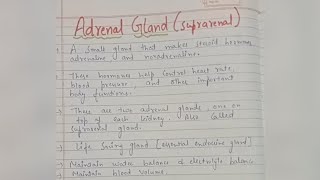 Adrenal Gland (suprarenal)
A small gland that makes steroid hormone,
adrenaline, and noradrenaline.
These hormones help control heart rate,
blood pressure, and other important
body functions.
There are two adrenal glands, one on
top of each kidney. Also called
suprarenal gland.
Life Saving gland (essential endocrine gland)
Maintain water balance & electrolyte balance.
Maintain blood volume.